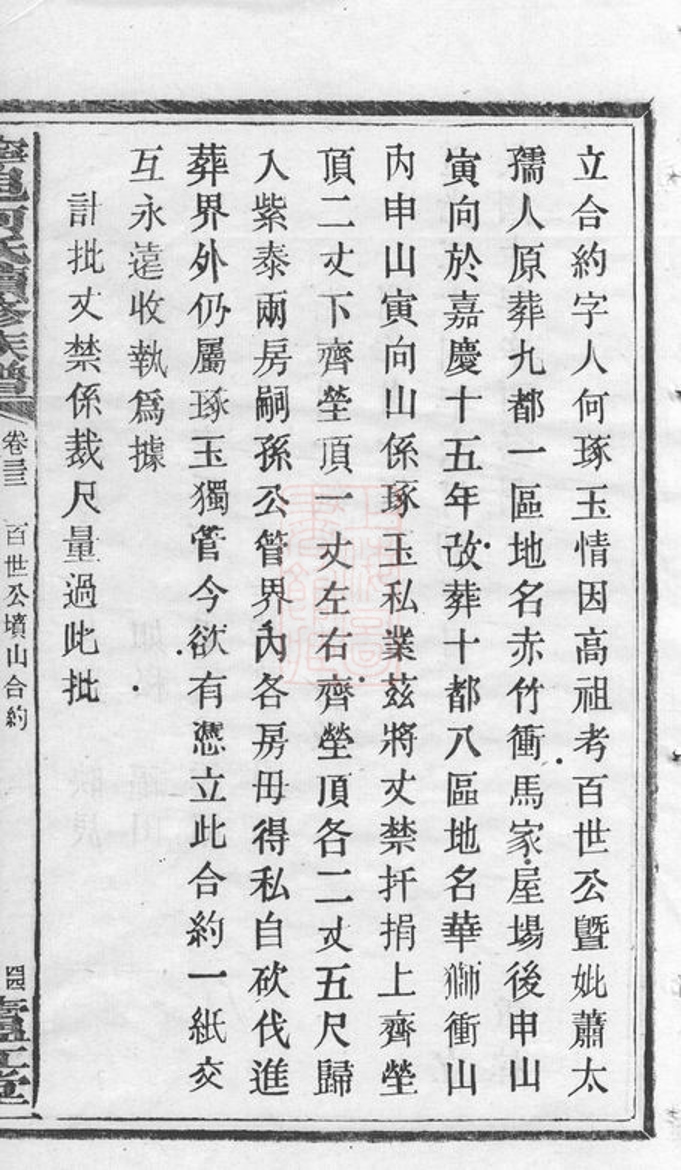 立合約字人何琢玉情因高祖考百世公曁妣蕭太
孺人原葬九都一區地名赤竹衝馬家屋場後申山
寅向於嘉慶十五年改葬十都八區地名華獅衝山
內申山寅向山係琢玉私業茲將丈禁扦捐上齊塋
頂二丈下齊塋頂一丈左右齊塋頂各二丈五尺歸
入紫泰兩房嗣孫公管界內各房毋得私自砍伐進
葬界外仍屬琢玉獨管今欲有憑立此合約一紙交
互永遠收執爲據
計批丈禁係裁尺量過此批
何氏續修族譜
卷三三
百世公墳山合約
四